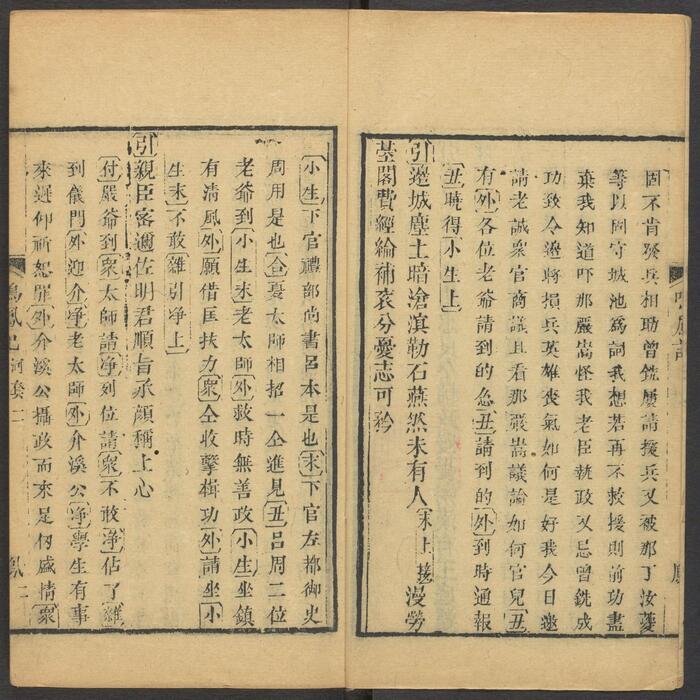 固不肯發兵相助曾銑屢請援兵又被那丁汝夔
等以固守城池爲詞我想若再不救援則前功盡
棄我知道吓那嚴嵩怪我老臣執政又忌曾銑成
功致令邊將損兵英雄喪氣如何是好我今日邀
請老誠衆官商議且看那嚴嵩議論如何官兒丑
有外各位老爺請到的急丑請到的外到時通報
丑曉得小生上
引邊城塵土暗滄溟勒石燕然未有人末上接漫勞
臺閣費經綸補袞分憂志可矜
小生下官禮部尚書呂本是也末下官左都御史
周用是也合夏太師相招一仝進見丑呂周二位
老爺到小生末老太師外救時無善政小生坐鎮
有清風外願借匡扶力衆仝收擊楫功外請坐小
生末不敢雜引净上
引親臣密邇佐明君順旨承顔稱上心
付嚴爺到衆太師請净列位請衆不敢净佔了雜
到儀門外迎介净老太師外介溪公净學生有事
來遲仰祈恕罪外介溪公攝政而來是仭感情衆
鳴鳳 河套 二